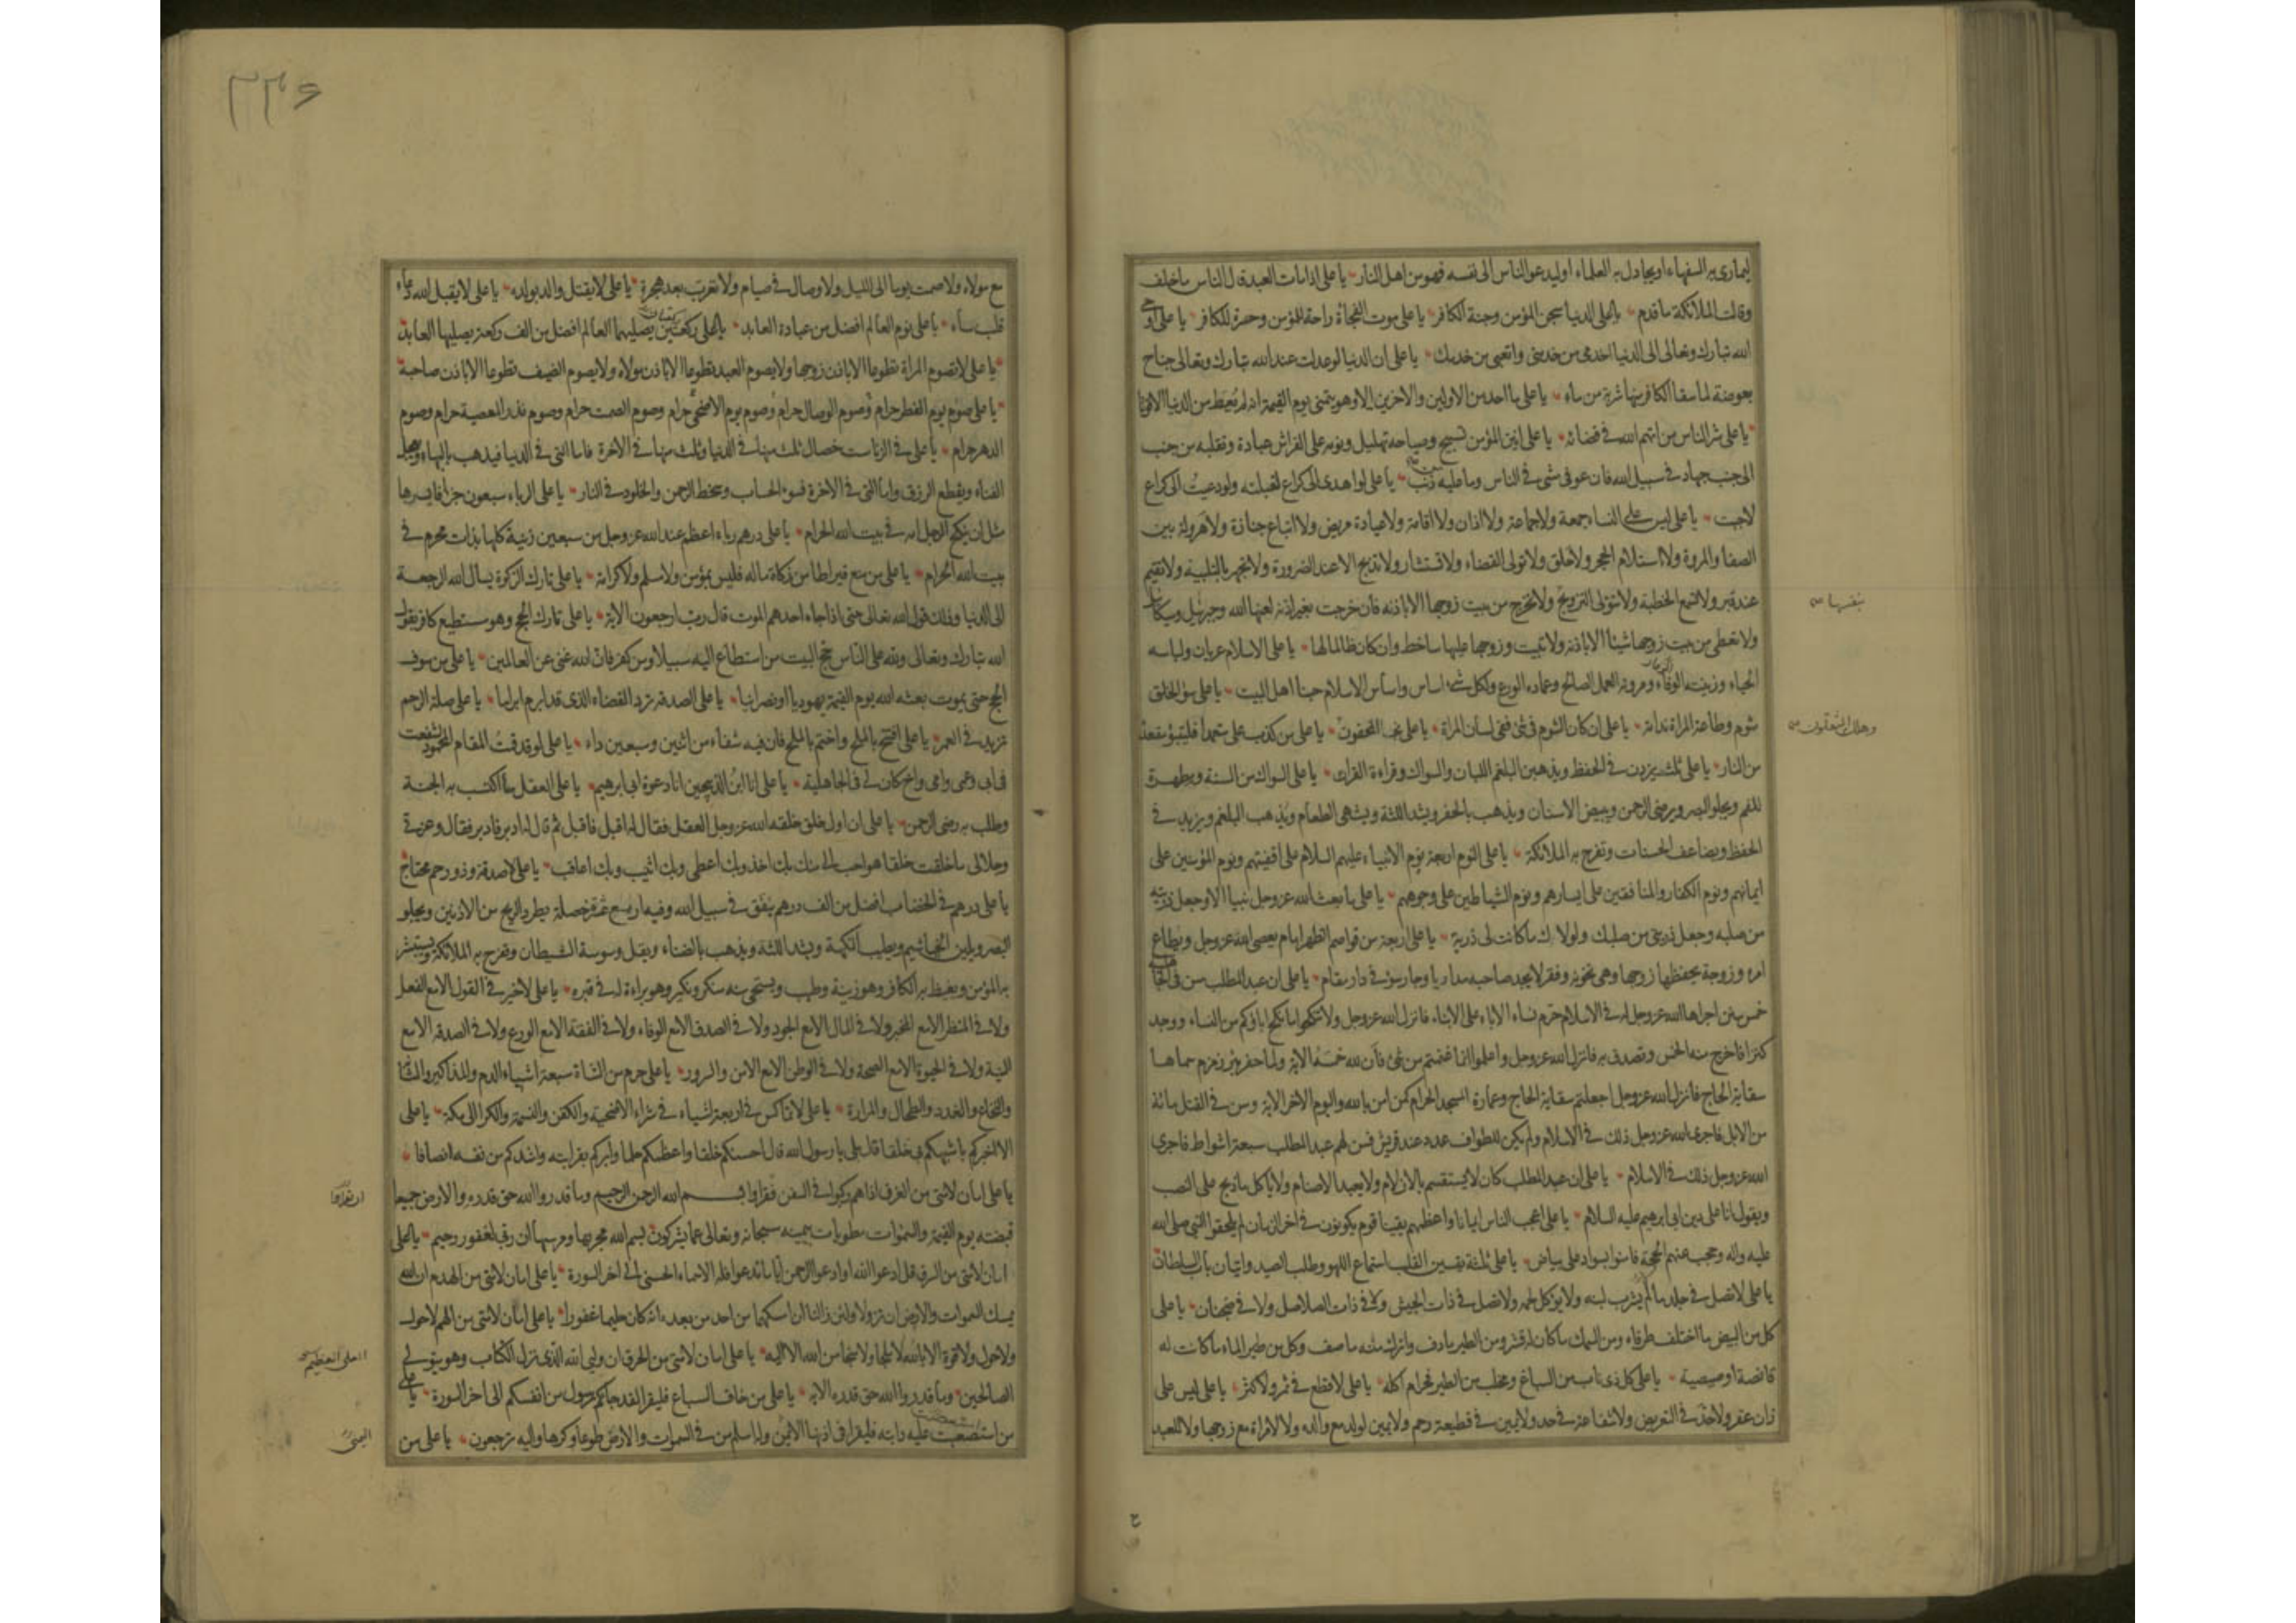 ليمارى به السفهاء او يجادل به العلماء او ليدعو الناس الى نفسه فهو من اهل النار يا على اذا مات العبد قال الناس ما خلف
وقالت الملائكة ما قدم يا على الدنيا سجن المؤمن وجنة الكافر يا على موت الفجأة راحة للمؤمن وحسرة للكافر يا على اوحى
الله تبارك وتعالى الى الدنيا اخدمى من خدمنى واتعبى من خدمك يا على ان الدنيا لو عدلت عند الله تبارك وتعالى جناح
بعوضة لما سقا الكافر منها شربة من ماء يا على ما احد من الاولين والاخرين الا وهو يتمنى يوم القيمة انه لم يُعط من الدنيا الا قوتا
يا على شر الناس من اتهم الله فى قضائه يا على انين المؤمن تسبيح وصياحه تهليل ونومه على الفراش عبادة وتقلبه من جنب
الى جنب جهاد فى سبيل الله فان عوفى مشى فى الناس وما عليه ذنب يا على لو اهدى الى كراع لقبلته ولو دعيت الى كراع
لاجبت يا على ليس على النساء جمعة ولا جماعة ولا اذان ولا اقامة ولا عيادة مريض ولا اتباع جنازة ولا هرولة بين
الصفا والمروة ولا استلام الحجر ولا حلق ولا تولى القضاء ولا تستشار ولا تذبح الا عند الضرورة ولا تجهر بالتلبية ولا تقيم
عند قبر ولا تسمع الخطبة ولا تتولى التزويج ولا تخرج من بيت زوجها الا باذنه فان خرجت بغير اذنه لعنها الله وجبرئيل وميكائيل
بنفسها
ولا تعطى من بيت زوجها شيئا الا باذنه ولا تبيت وزوجها عليها ساخط وان كان ظالما لها يا على الاسلام عريان ولباسه
الحياء وزينته الوفاء ومروته العمل الصالح وعماده الورع ولكل شىء اساس واساس الاسلام حبنا اهل البيت يا على سوء الخلق
شوم وطاعة المراة ندامة يا على ان كان الشوم فى شئ ففى لسان المراة يا على نجى المخفون يا على من كذب على متعمدا فليتبؤ مقعده
وهلك المثقلون
من النار يا على ثلث يزدن فى الحفظ ويذهبن البلغم اللبان والسواك وقراءة القران يا على السواك من السنة ومطهرة
للفم ويجلو البصر ويرضى الرحمن ويبيض الاسنان ويذهب بالحفر ويشد اللثة ويشهى الطعام ويذهب البلغم ويزيد فى
الحفظ ويضاعف الحسنات وتفرح به الملائكة يا على النوم اربعة نوم الانبياء عليهم السلام على اقفيتهم ونوم المؤمنين على
ايمانهم ونوم الكفار والمنافقين على ايسارهم ونوم الشياطين على وجوههم يا على ما بعث الله عز وجل نبيا الا وجعل ذريته
من صلبه وجعل ذريتى من صلبك ولولاك ما كانت لى ذرية يا على اربعة من قواصم الظهر امام يعصى الله عز وجل ويطاع
امره وزوجة يحفظها زوجها وهى تخونه وفقر لا يجد صاحبه مداريا وجار سوء فى دار مقام يا على ان عبد المطلب سن فى الجاهلية
خمس سنن اجراها الله عز وجل له فى الاسلام حرم نساء الاباء على الابناء فانزل الله عز وجل ولا تنكحوا ما نكح اباؤكم من النساء ووجد
كنزا فاخرج منه الخمس وتصدق به فانزل الله عز وجل واعلموا انما غنمتم من شئ فأن لله خمسه الاية ولما حفر بئر زمزم سماها
سقاية الحاج فانزل الله عز وجل اجعلتم سقاية الحاج وعمارة المسجد الحرام كمن امن بالله واليوم الاخر الاية وسن فى القتل مائة
من الابل فاجرى الله عز وجل ذلك فى الاسلام ولم يكن للطواف عدد عند قريش فسن لهم عبد المطلب سبعة اشواط فاجرى
الله عز وجل ذلك فى الاسلام يا على ان عبد المطلب كان لا يستقسم بالازلام ولا يعبد الاصنام ولا ياكل ما ذبح على النصب
ويقول انا على دين ابى ابرهيم عليه السلام يا على اعجب الناس ايمانا واعظمهم يقينا قوم يكونون فى اخر الزمان لم يلحقوا النبى صلى الله
عليه واله وحجب عنهم الحجة فامنوا بسواد على بياض يا على ثلثة يقسين القلب استماع اللهو وطلب الصيد واتيان باب السلطان
يا على لا تصل فى جلد ما لم يشرب لبنه ولا يؤكل لحمه ولا تصل فى ذات الجيش ولا فى ذات الصلاصل ولا فى ضجنان يا على
كل من البيض ما اختلف طرفاه ومن السمك ما كان له قشر ومن الطير ما دف واترك منه ما صف وكل من طير الماء ما كانت له
قانصة او صيصية يا على كل ذى ناب من السباع ومخلب من الطير فحرام اكله يا على لا قطع فى ثمر ولا كثر يا على ليس على
زان عقر ولا حد فى التعريض ولا شفاعة فى حد ولا يمين فى قطيعة رحم ولا يمين لولد مع والده ولا لامراة مع زوجها ولا للعبد
ع
٢٣٦
مع مولاه ولا صمت يوما الى الليل ولا وصال فى صيام ولا تعرب بعد هجرة يا على لا يقتل والد بولده يا على لا يقبل الله دعاء
قلب ساه يا على نوم العالم افضل من عبادة العابد يا على ركعتين يصليهما العالم افضل من الف ركعة يصليها العابد
يا على لا تصوم المراة تطوعا الا باذن زوجها ولا يصوم العبد تطوعا الا باذن مولاه ولا يصوم الضيف تطوعا الا باذن صاحبه
يا على صوم يوم الفطر حرام وصوم الوصال حرام وصوم يوم الاضحى حرام وصوم الصمت حرام وصوم نذر المعصية حرام وصوم
الدهر حرام يا على فى الزنا ست خصال ثلث منها فى الدنيا وثلث منها فى الاخرة فاما التى فى الدنيا فيذهب بالبهاء ويعجل
الفناء ويقطع الرزق واما التى فى الاخرة فسوء الحساب وسخط الرحمن والخلود فى النار يا على الرباء سبعون جزأ فايسرها
مثل ان ينكح الرجل امه فى بيت الله الحرام يا على درهم رباء اعظم عند الله عز وجل من سبعين زنية كلها بذات محرم فى
بيت الله الحرام يا على من منع قيراطا من زكاة ماله فليس بمؤمن ولا مسلم ولا كرامة يا على تارك الزكوة يسال الله الرجعة
الى الدنيا وذلك قول الله تعالى حتى اذا جاء احدهم الموت قال رب ارجعون الاية يا على تارك الحج وهو مستطيع كافر يقول
الله تبارك وتعالى ولله على الناس حج البيت من استطاع اليه سبيلا ومن كفر فان الله غنى عن العالمين يا على من سوف
الحج حتى يموت بعثه الله يوم القيمة يهوديا او نصرانيا يا على الصدقة ترد القضاء الذى قد ابرم ابراما يا على صلة الرحم
تزيد فى العمر يا على افتتح بالملح واختم بالملح فان فيه شفاء من اثنين وسبعين داء يا على لو قد قمت المقام المحمود لشفعت
فى ابى وعمى وامى واخ كان لى فى الجاهلية يا على انا ابن الذبيحين انا دعوة ابى ابرهيم يا على العقل ما اكتسب به الجنة
وطلب به رضى الرحمن يا على ان اول خلق خلقه الله عز وجل العقل فقال له اقبل فاقبل ثم قال له ادبر فادبر فقال وعزتى
وجلالى ما خلقت خلقا هو احب الى منك بك اخذ وبك اعطى وبك اثيب وبك اعاقب يا على لا صدقة وذو رحم محتاج
يا على درهم فى الخضاب افضل من الف درهم ينفق فى سبيل الله وفيه اربع عشرة خصلة يطرد الريح من الاذنين ويجلو
البصر ويلين الخياشيم ويطيب النكهة ويشد اللثة ويذهب بالضناء ويقل وسوسة الشيطان وتفرح به الملائكة ويستبشر
به المؤمن ويغيظ به الكافر وهو زينة وطيب ويستحى منه منكر ونكير وهو براءة له فى قبره يا على لا خير فى القول الا مع الفعل
ولا فى المنظر الا مع المخبر ولا فى المال الا مع الجود ولا فى الصدق الا مع الوفاء ولا فى الفقه الا مع الورع ولا فى الصدقة الا مع
النية ولا فى الحيوة الا مع الصحة ولا فى الوطن الا مع الامن والسرور يا على حرم من الشاة سبعة اشياء الدم والمذاكير والمثانة
والنخاع والغدد والطحال والمرارة يا على لا تماكس فى اربعة اشياء فى شراء الاضحية والكفن والنسمة والكراء الى مكة يا على
الا اخبركم باشبهكم بى خلقا قال بلى يا رسول الله قال احسنكم خلقا واعظمكم حلما وابركم بقرابته واشدكم من نفسه انصافا
يا على امان لامتى من الغرق اذا هم ركبوا فى السفن فقراوا بسم الله الرحمن الرحيم وما قدروا الله حق قدره والارض جميعا
قبضته يوم القيمة والسموات مطويات بيمينه سبحانه وتعالى عما يشركون بسم الله مجريها ومرسيها ان ربى لغفور رحيم يا على
امان لامتى من السرق قل ادعوا الله او ادعوا الرحمن ايا ما تدعوا فله الاسماء الحسنى الى اخر السورة يا على امان لامتى من الهدم ان الله
يمسك السموات والارض ان تزولا ولئن زالتا ان امسكهما من احد من بعده انه كان حليما غفورا يا على امان لامتى من الهم لا حول
ولا حول ولا قوة الا بالله لا ملجا ولا منجا من الله الا اليه يا على امان لامتى من الحرق ان وليى الله الذى نزل الكتاب وهو يتولى
العلى العظيم
الصالحين وما قدروا الله حق قدره الاية يا على من خاف السباع فليقرا لقد جاءكم رسول من انفسكم الى اخر السورة يا على
من استصعبت عليه دابته فليقرا فى اذنها الايمن وله اسلم من فى السموات والارض طوعا وكرها واليه ترجعون يا على من
اليمنى